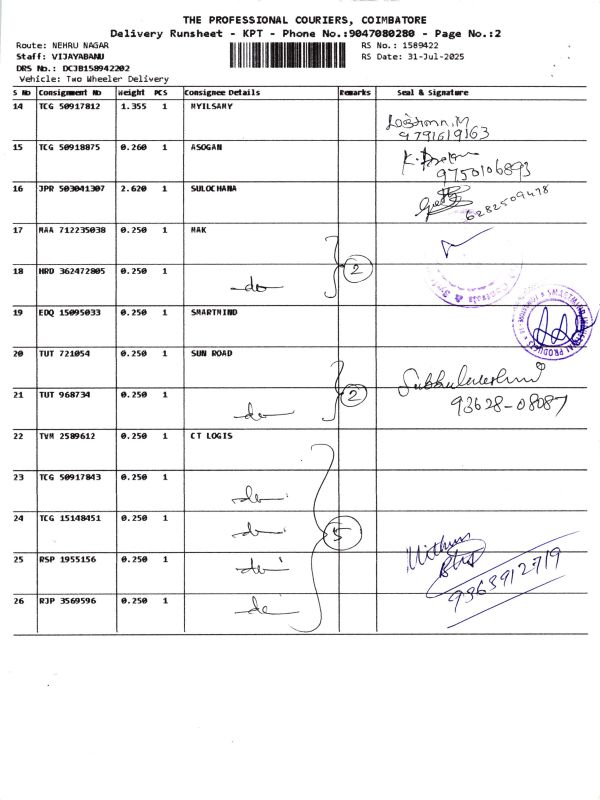 THE PROFESSIONAL COURIERS, COIMBATORE
Delivery Runsheet - KPT - Phone No.:9047080280 - Page No.:2
Route: NEHRU NAGAR RS No.: 1589422
Staff: VIJAYABANU RS Date: 31-Jul-2025
DRS No.: DCJB158942202
Vehicle: Two Wheeler Delivery
S No Consignment No Weight PCS Consignee Details Remarks Seal & Signature
14 TCG 50917812 1.355 1 MYILSAMY
9791619163
15 TCG 50918875 0.260 1 ASOGAN
9750106893
16 JPR 503041307 2.620 1 SULOCHANA
6282509478
17 MAA 712235038 0.250 1 MAK
18 HRD 362472805 0.250 1 do 2
19 EDQ 15095033 0.250 1 SMARTMIND
20 TUT 721054 0.250 1 SUN ROAD
21 TUT 968734 0.250 1 do 2
93628-08087
22 TVM 2589612 0.250 1 CT LOGIS
23 TCG 50917843 0.250 1 do
24 TCG 15148451 0.250 1 do 5
25 RSP 1955156 0.250 1 do
26 RJP 3569596 0.250 1 do
9363912719